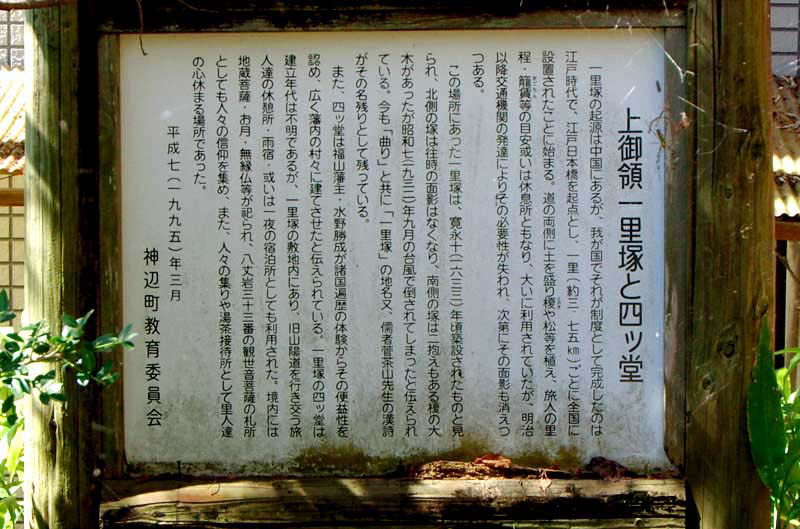 上御領一里塚と四ツ堂
一里塚の起源は中国にあるが、我が国でそれが制度として完成したのは
江戸時代で、江戸日本橋を起点とし、一里(約三・七五㎞)ごとに全国に
設置されたことに始まる。道の両側に土を盛り榎や松等を植え、旅人の里
程・籠賃等の目安或いは休息所ともなり、大いに利用されていたが、明治
以降交通機関の発達によりその必要性が失われ、次第にその面影も消えつ
つある。
この場所にあった一里塚は、寛永十(一六三三)年頃築設されたものと見
られ、北側の塚は往時の面影はなくなり、南側の塚は二抱えもある榎の大
木があったが昭和七(一九三二)年九月の台風で倒されてしまったと伝えられ
ている。今も「曲り」と共に「一里塚」の地名又、儒者菅茶山先生の漢詩
がその名残りとして残っている。
また、四ツ堂は福山藩主・水野勝成が諸国遍歴の体験からその便益性を
認め、広く藩内の村々に建てさせたと伝えられている。一里塚の四ツ堂は
建立年代は不明であるが、一里塚の敷地内にあり、旧山陽道を行き交う旅
人達の休憩所・雨宿・或いは一夜の宿泊所としても利用された。境内には
地蔵菩薩・お月・無縁仏等が祀られ、八丈岩三十三番の観世音菩薩の札所
としても人々の信仰を集め、また、人々の集りや湯茶接待所として里人達
の心休まる場所であった。
平成七(一九九五)年三月
神辺町教育委員会